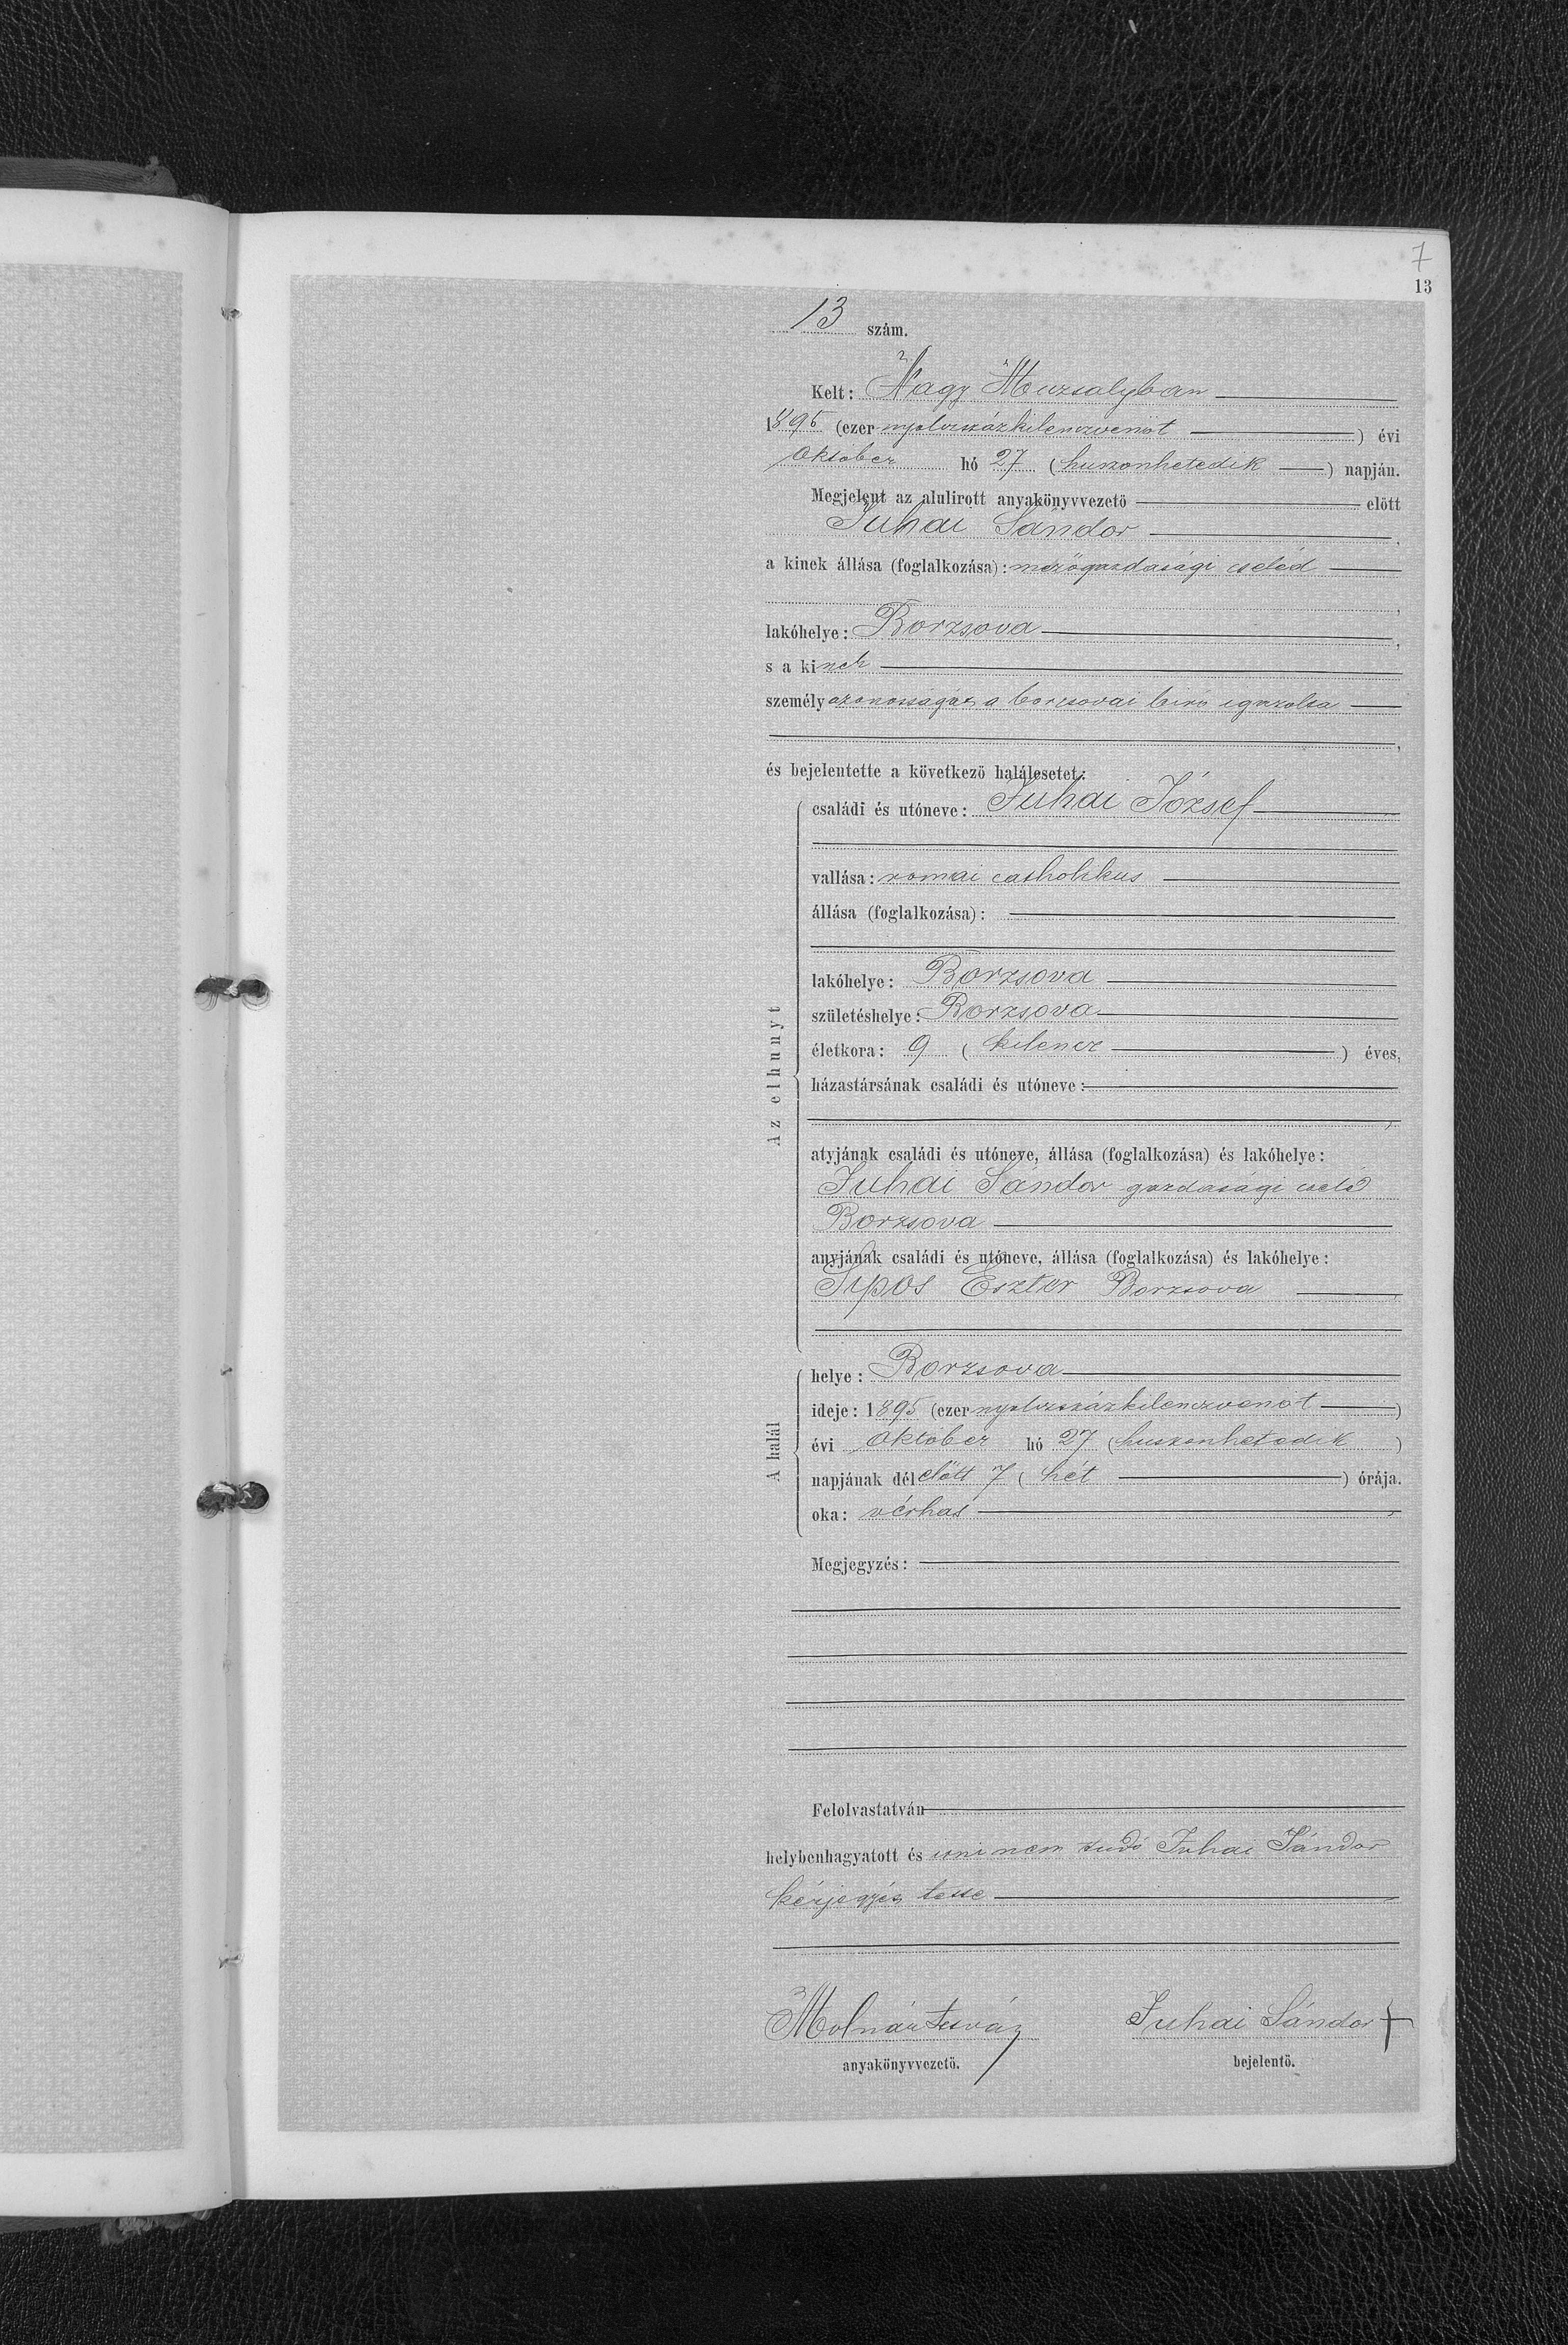 7
13
13 szám.
Kelt: Nagy Muzsalyban
1895 (ezer nyolczszázkilenczvenöt) évi
Október hó 27 (huszonhetedik) napján.
Megjelent az alulirott anyakönyvvezető előtt
Juhai Sándor,
a kinek állása (foglalkozása): mezőgazdasági cseléd
,
lakóhelye: Borzsova,
s a kinek
személyazonosságát a borzsovai biró igazolta
,
és bejelentette a következő halálesetet:
Az elhunyt
családi és utóneve: Juhai József
vallása: romai catholikus
állása (foglalkozása):
lakóhelye: Borzsova
születéshelye: Borzsova
életkora: 9 (kilencz) éves,
házastársának családi és utóneve:
,
atyjának családi és utóneve, állása (foglalkozása) és lakóhelye:
Juhai Sándor gazdasági cseléd
Borzsova
anyjának családi és utóneve, állása (foglalkozása) és lakóhelye:
Sipos Eszter Borzsova
A halál
helye: Borzsova
ideje: 1895 (ezer nyolczszázkilenczvenöt)
évi Október hó 27 (huszonhetedik)
napjának délelőtt 7 (hét) órája.
oka: vérhas
Megjegyzés:
Felolvastatván
helybenhagyatott és irni nem tudó Juhai Sándor
kézjegyés tette
Molnár István Juhai Sándor +
anyakönyvvezető. bejelentő.